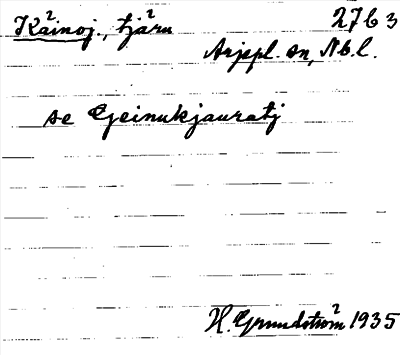 Kainoj., tjärn 2763
Arjppl. sn, Nb. l.
se Geinukjauratj
H. Grundström 1935